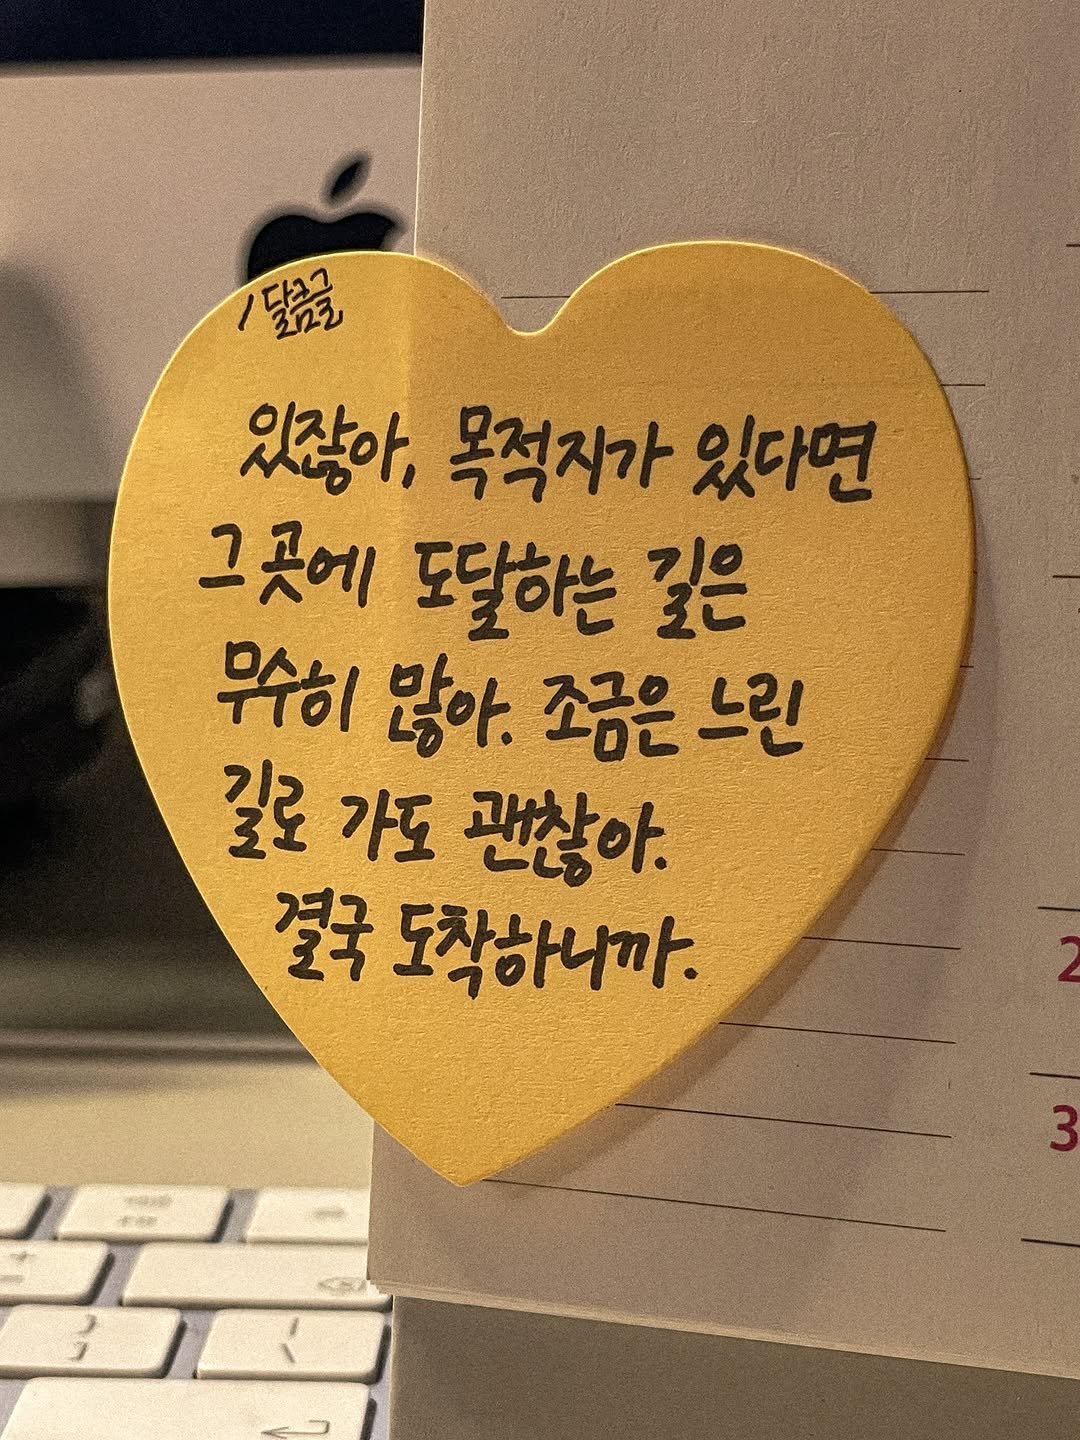 /달콤글
있잖아, 목적지가 있다면
그 곳에 도달하는 길은
무수히 많아. 조금은 느린
길로 가도 괜찮아.
결국 도착하니까.
2
3